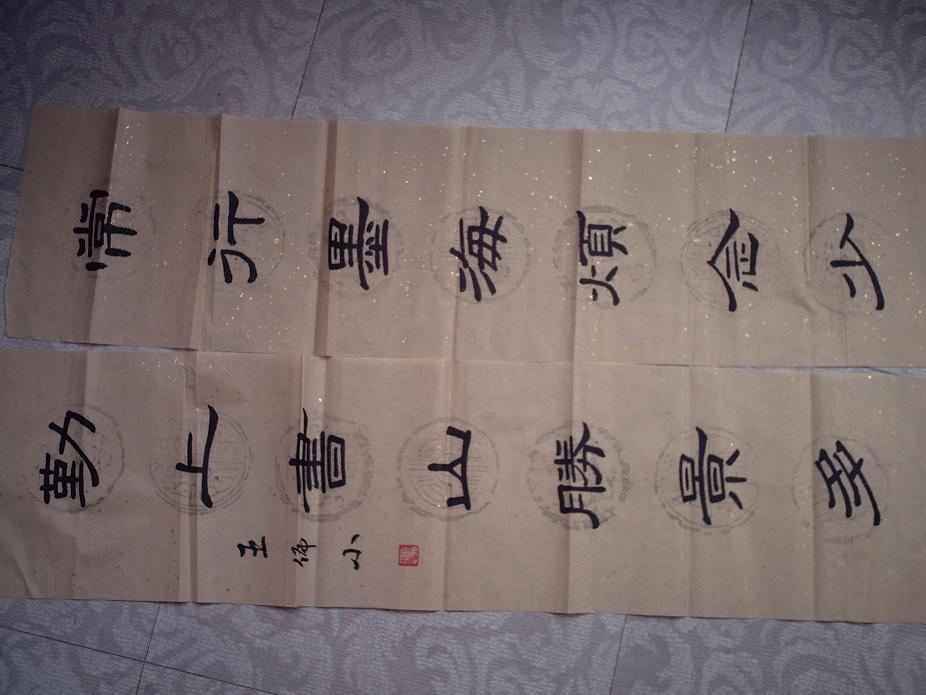 常行墨海煩念少
勤上書山勝景多
王小